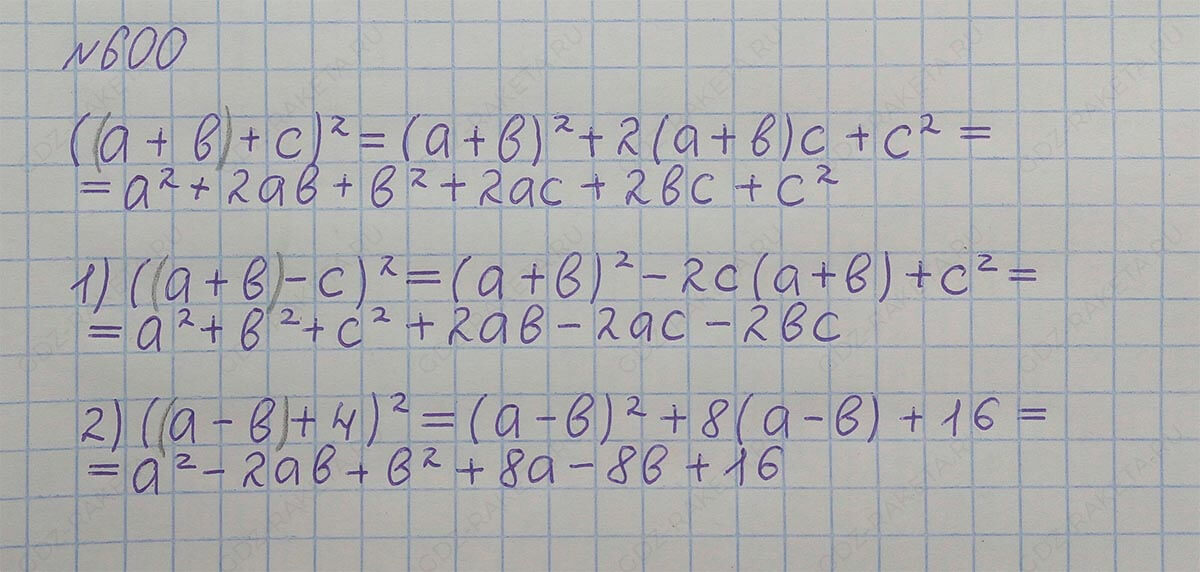 №600
((a + b) + c)² = (a + b)² + 2(a + b)c + c² =
= a² + 2ab + b² + 2ac + 2bc + c²
1) ((a + b) - c)² = (a + b)² - 2c(a + b) + c² =
= a² + b² + c² + 2ab - 2ac - 2bc
2) ((a - b) + 4)² = (a - b)² + 8(a - b) + 16 =
= a² - 2ab + b² + 8a - 8b + 16
GDZ-RAKETA.RU